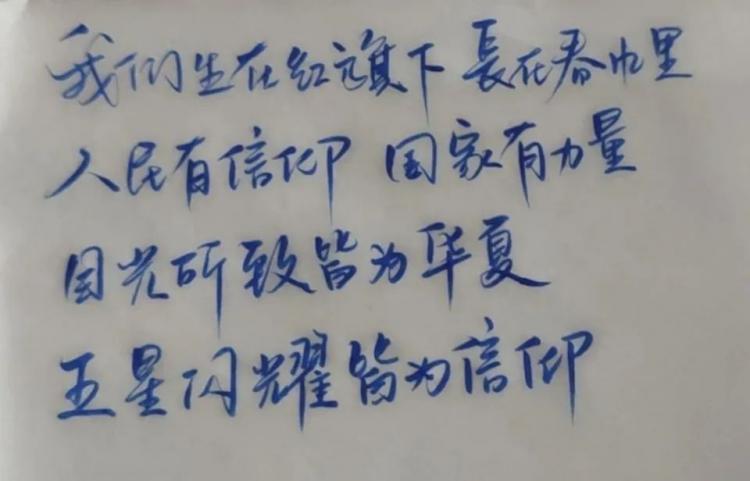 我们生在红旗下 長在春巾里
人民有信仰 国家有力量
目光所致皆为华夏
五星闪耀皆为信仰